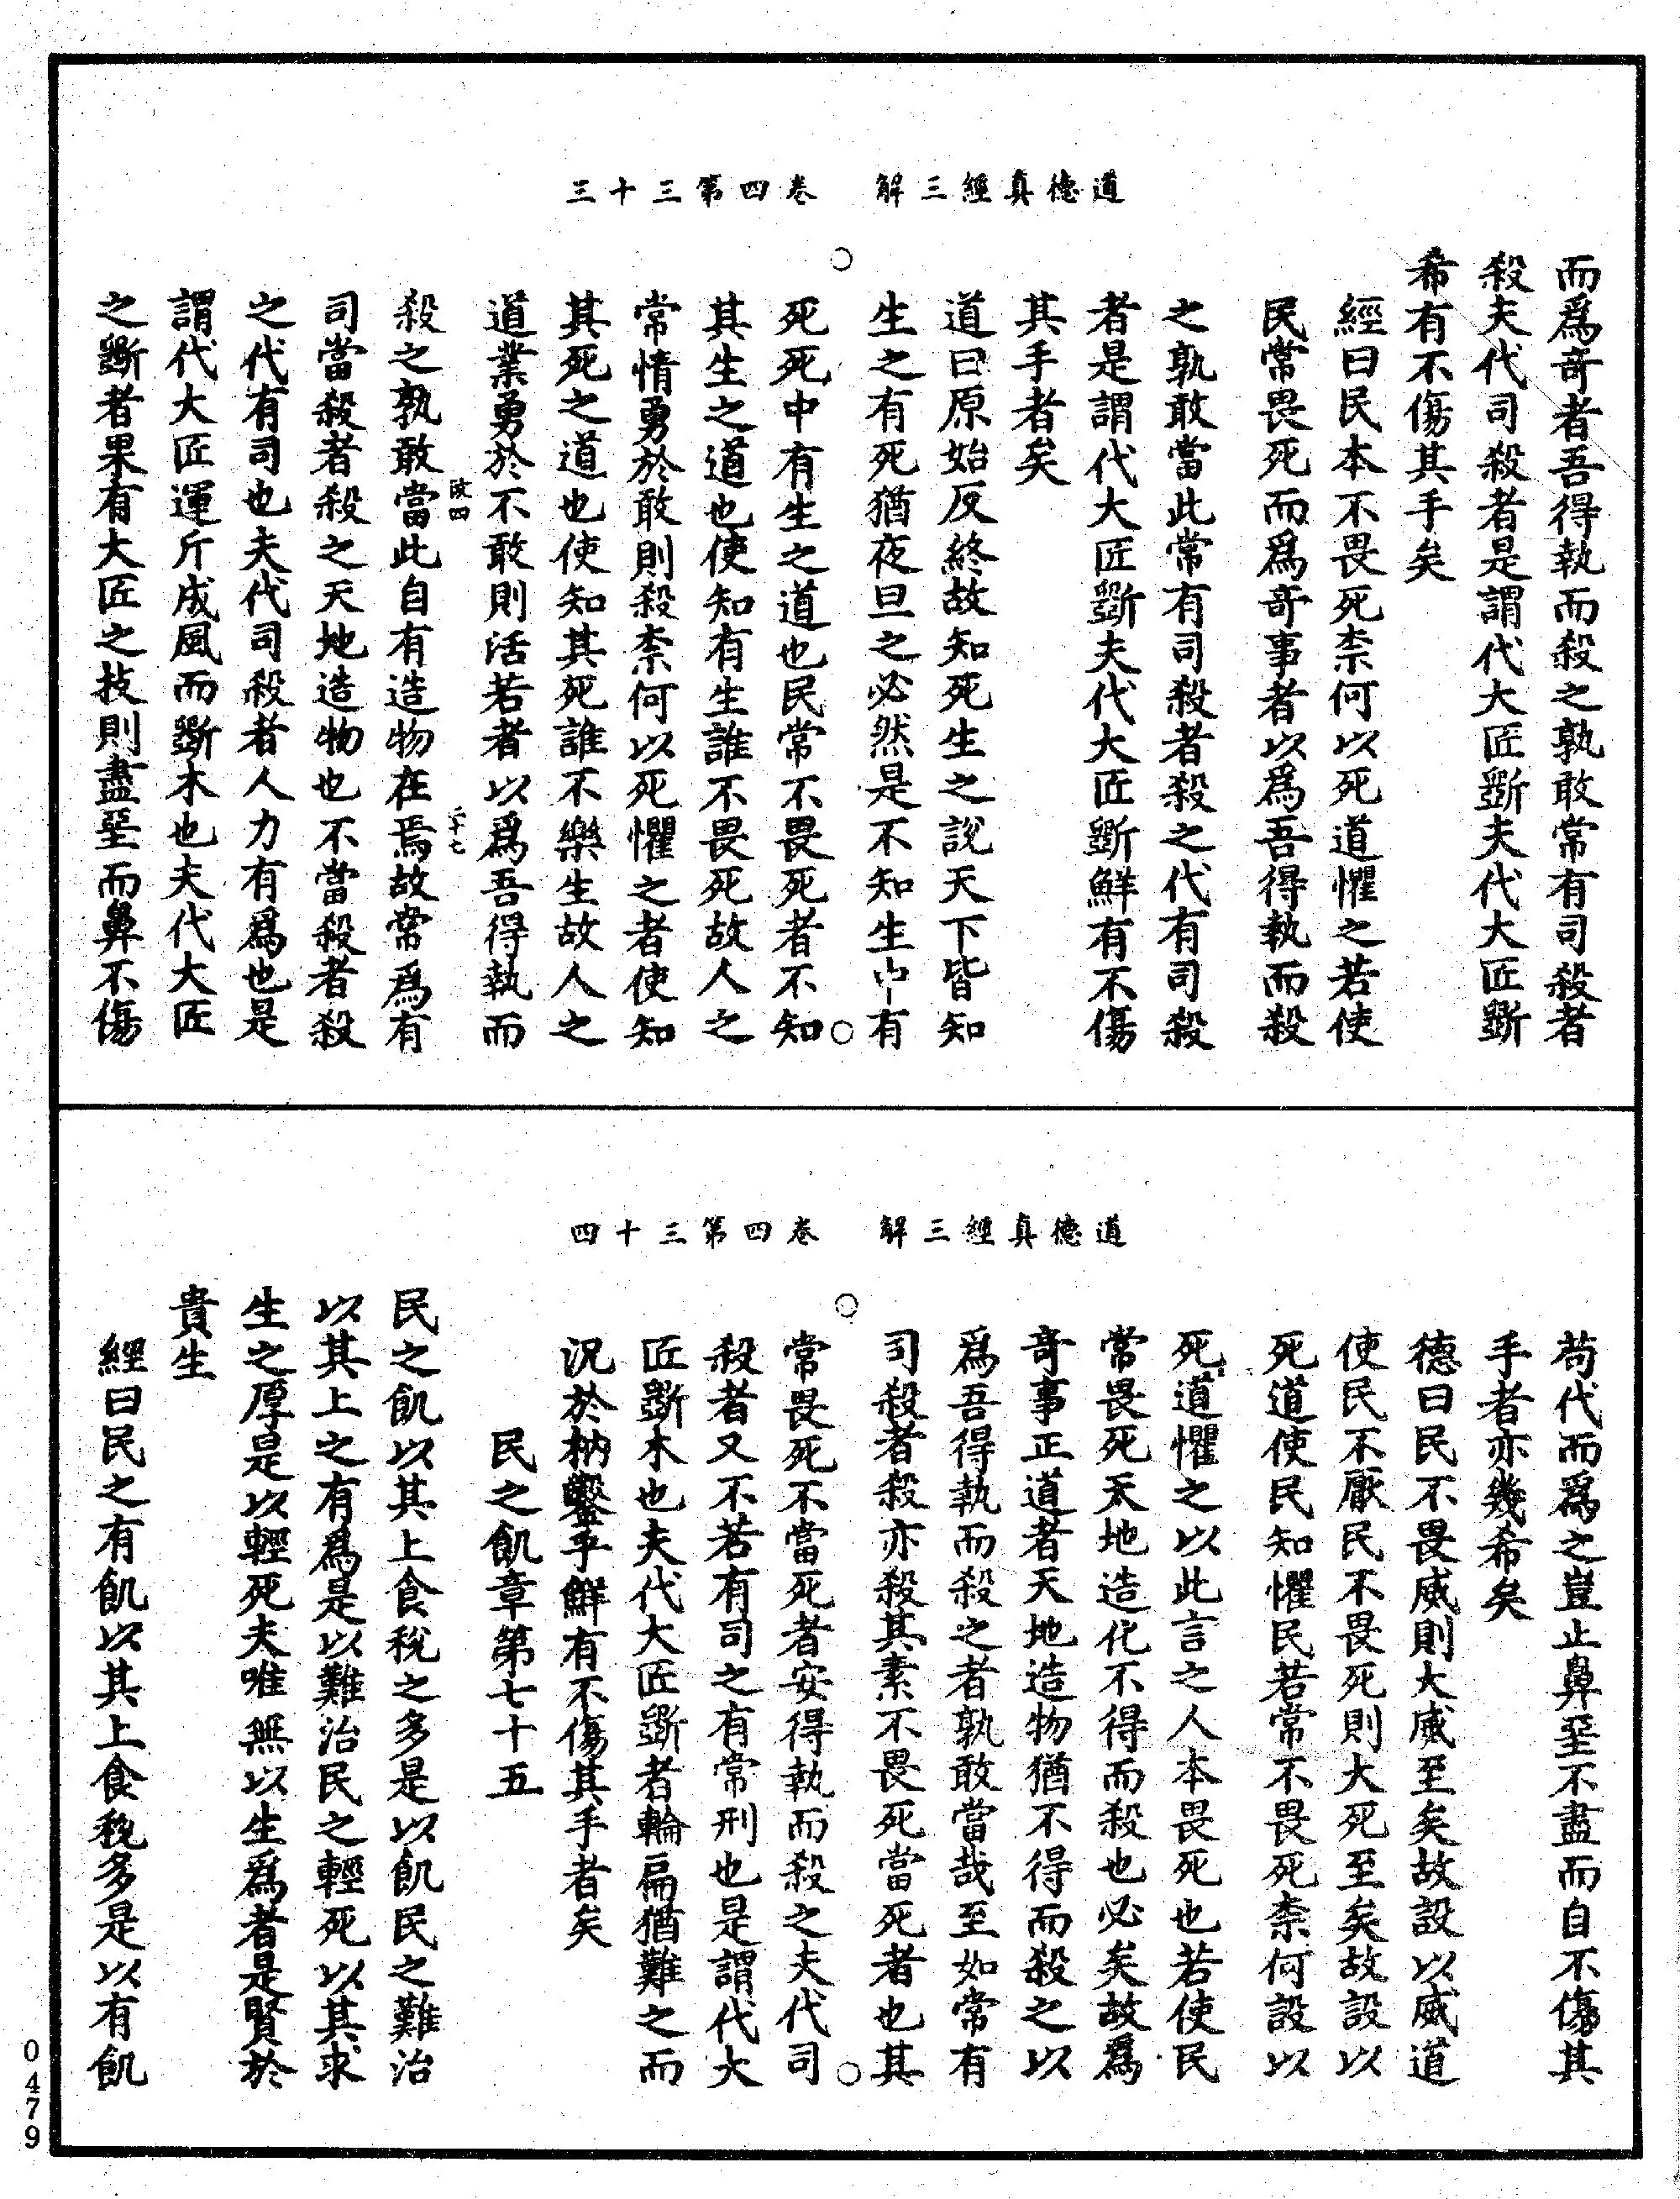 道德真經三解　卷四第三十三
而爲奇者吾得執而殺之孰敢常有司殺者
殺夫代司殺者是謂代大匠斲夫代大匠斲
希有不傷其手矣
經曰民本不畏死柰何以死道懼之若使
民常畏死而爲奇事者以爲吾得執而殺
之孰敢當此常有司殺者殺之代有司殺
者是謂代大匠斲夫代大匠斲鮮有不傷
其手者矣
道曰原始反終故知死生之說天下皆知
生之有死猶夜旦之必然是不知生中有
死死中有生之道也民常不畏死者不知
其生之道也使知有生誰不畏死故人之
常情勇於敢則殺柰何以死懼之者使知
其死之道也使知其死誰不樂生故人之
道業勇於不敢則活若者以爲吾得執而
殺之孰敢當此自有造物在焉故常爲有
司當殺者殺之天地造物也不當殺者殺
之代有司也夫代司殺者人力有爲也是
謂代大匠運斤成風而斲木也夫代大匠
之斲者果有大匠之技則盡堊而鼻不傷
道德真經三解　卷四第三十四
苟代而爲之豈止鼻堊不盡而自不傷其
手者亦幾希矣
德曰民不畏威則大威至矣故設以威道
使民不厭民不畏死則大死至矣故設以
死道使民知懼民若常不畏死柰何設以
死道懼之以此言之人本畏死也若使民
常畏死天地造化不得而殺也必矣故爲
奇事正道者天地造物猶不得而殺之以
爲吾得執而殺之者孰敢當哉至如常有
司殺者殺亦殺其素不畏死當死者也其
常畏死不當死者安得執而殺之夫代司
殺者又不若有司之有常刑也是謂代大
匠斲木也夫代大匠斲者輪扁猶難之而
況於枘鑿乎鮮有不傷其手者矣
民之飢章第七十五
民之飢以其上食稅之多是以飢民之難治
以其上之有爲是以難治民之輕死以其求
生之厚是以輕死夫唯無以生爲者是賢於
貴生
經曰民之有飢以其上食稅多是以有飢
0479